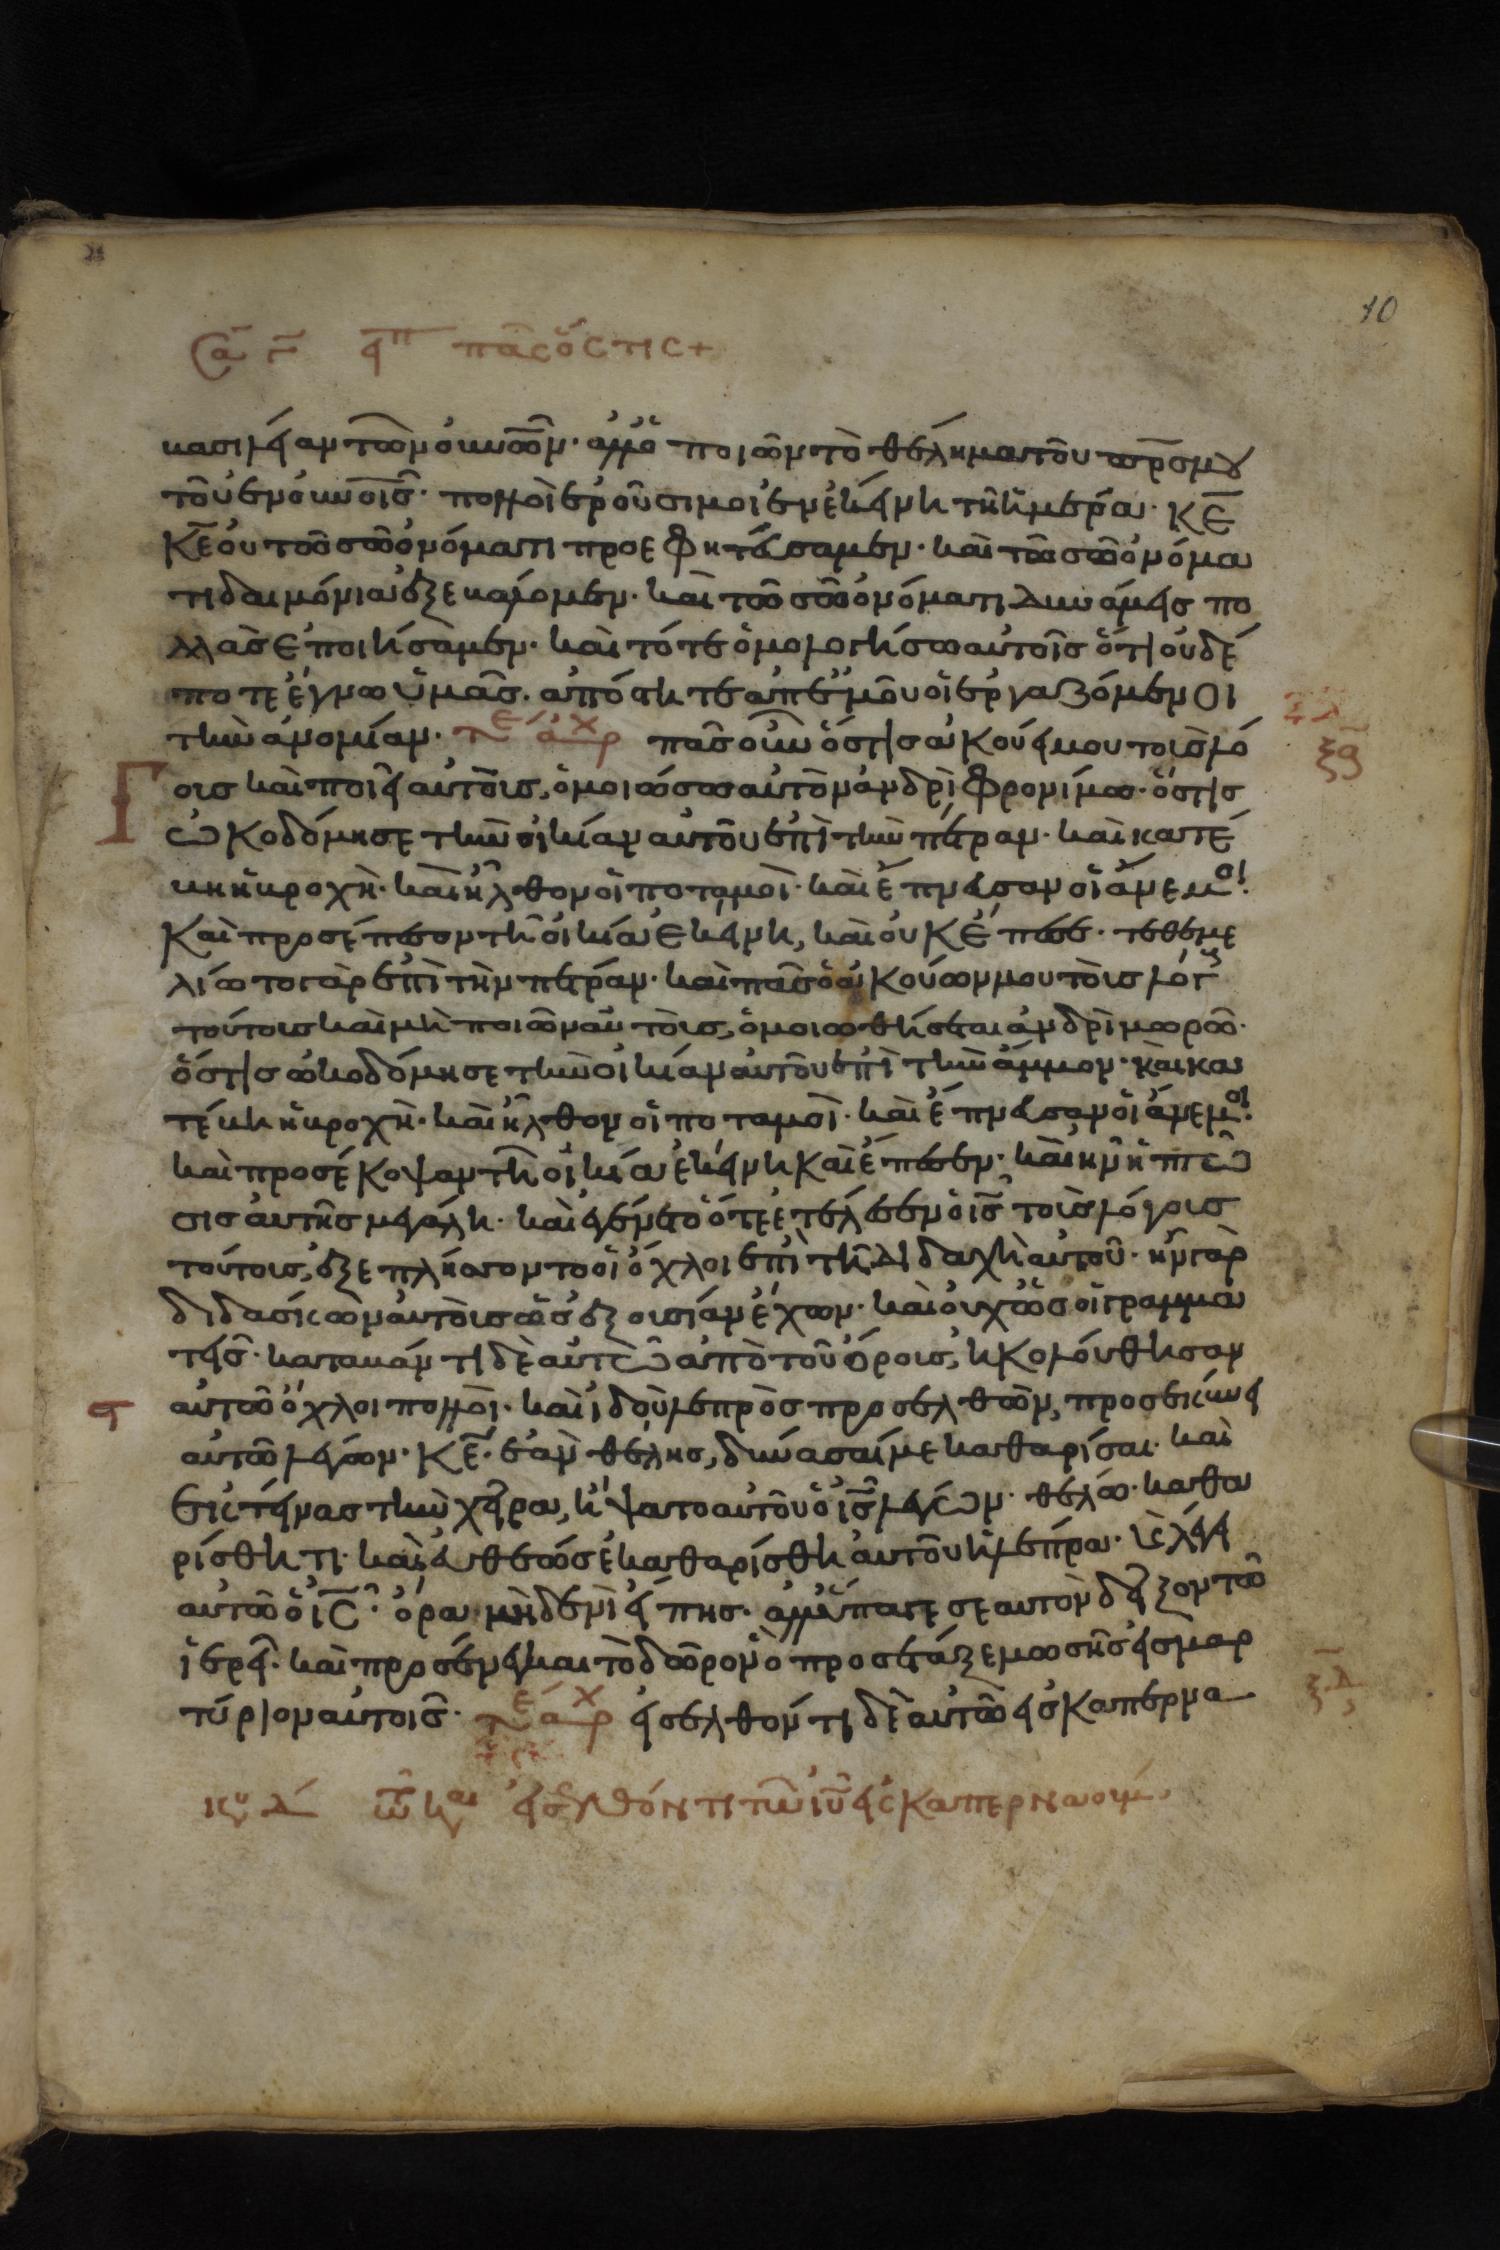 10
Σα γ ειπ πᾶς ὅστις +
βασιλείαν τῶν οὐ(ρα)νῶν· ἀλλ' ὁ ποιῶν τὸ θέλημα τοῦ π(ατ)ρ(ό)ς μου
τοῦ ἐν οὐ(ρα)νοῖς· πολλοὶ ἐροῦσι μοι ἐν ἐκείνη τῆ ἡμέρα· κε
κε οὐ τῶ σῶ ὀνόματι προεφητεύσαμεν· καὶ τῶ σῶ ὀνόμα
τι δαιμόνια ἐξεβάλομεν· καὶ τῶ σῶ ὀνόματι δυνάμεις πο
λλὰς ἐποιήσαμεν· καὶ τότε ὁμολογήσω αὐτοῖς ὅτι οὐδέ
ποτε ἔγνω ὑμᾶς· ἀπόστητε ἀπ' ἐμοῦ οἱ ἐργαζόμενοι
τὴν ἀνομίαν· τε αρχ πᾶς οὖν ὅστις ἀκούει μου τοὺς λό
γοις καὶ ποιεῖ αὐτοῖς, ὁμοιώσω αὐτὸν ἀνδρὶ φρονίμω· ὅστις
ὠκοδόμησε τὴν οἰκίαν αὐτοῦ ἐπὶ τὴν πέτραν· καὶ κατέ
βη ἡ βροχὴ· καὶ ἦλθον οἱ ποταμοὶ· καὶ ἔπνευσαν οἱ ἄνεμοι·
καὶ προσέπεσον τῆ οἰκία ἐκείνη, καὶ οὐκ ἔπεσε· τεθεμε
λίωτο γὰρ ἐπὶ τὴν πέτραν· καὶ πᾶς ὁ ἀκούων μου τοὺς λόγους
τούτοις καὶ μὴ ποιῶν αὐτοῖς, ὁμοιωθήσεται ἀνδρὶ μωρῶ·
ὅστις ὠκοδόμησε τὴν οἰκίαν αὐτοῦ ἐπὶ τὴν ἄμμον· καὶ κα
τέβη ἡ βροχὴ· καὶ ἦλθον οἱ ποταμοὶ· καὶ ἔπνευσαν οἱ ἄνεμοι·
καὶ προσέκοψαν τῆ οἰκία ἐκείνη καὶ ἔπεσεν· καὶ ἦν ἡ πτῶ
σις αὐτῆς μεγάλη· καὶ ἐγένετο ὅτε ἐτέλεσεν ὁ ις τοὺς λόγοις
τούτοις, ἐξεπλήσσοντο οἱ ὄχλοι ἐπὶ τῆ διδαχῆ αὐτοῦ· ἦν γὰρ
διδάσκων αὐτοῖς ὡς ἐξουσίαν ἔχων· καὶ οὐχ ὡς οἱ γραμμα
τεῖς· καταβάντι δὲ αὐτῶ ἀπὸ τοῦ ὄροις, ἠκολούθησαν
αὐτῶ ὄχλοι πολλοὶ· καὶ ἰδοὺ λεπρὸς προσελθὼν, προσεκύνει
αὐτῶ λέγων· κε· ἐὰν θέλης, δύνασαί με καθαρίσαι· καὶ
ἐκτείνας τὴν χεῖρα, ἥψατο αὐτοῦ ὁ ις λέγων· θέλω· καθα
ρίσθητι· καὶ εὐθέως ἐκαθαρίσθη αὐτοῦ ἡ λέπρα· κ(αὶ) λέγει
αὐτῶ ὁ ις· ὅρα μηδενὶ εἴπης· ἀλλ' ὕπαγε σεαυτὸν δεῖξον τῶ
ἱερεῖ· καὶ προσένεγκαι τὸ δῶρον ὃ προσέταξε μωσῆς εἰς μαρ
τύριον αὐτοῖς· τε αρχ εἰσελθόντι δὲ αὐτῶ εἰς καπερνα
κυ δ τω και εἰσελθόντι τῶ ιυ εἰς καπερναούμ